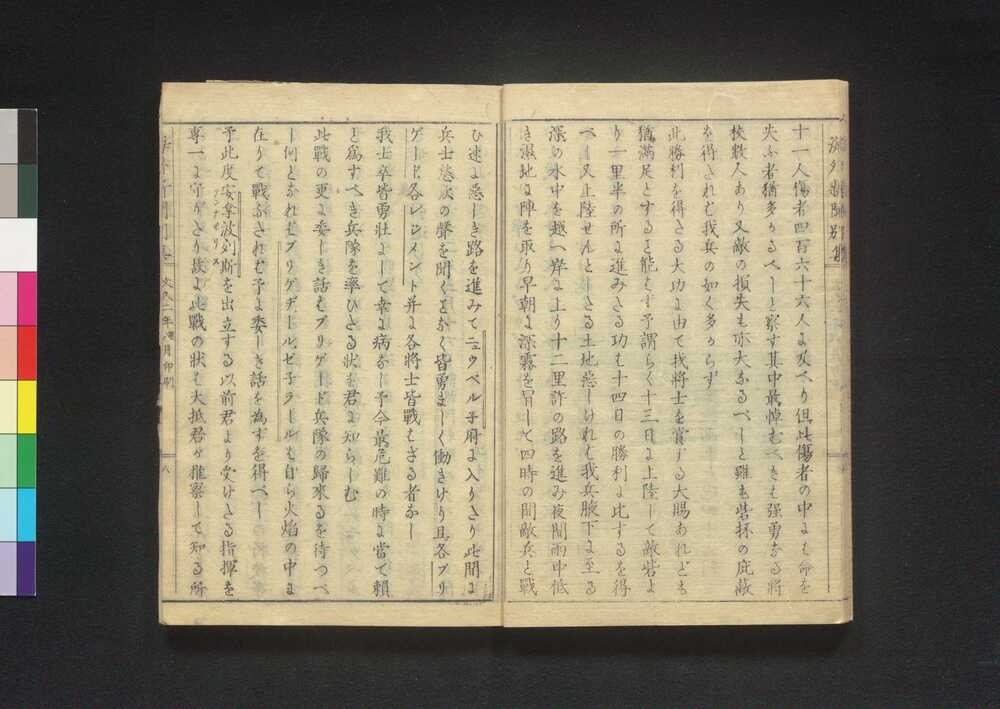 十一人傷者四百六十六人に及べり但此傷者の中にも命を
失ふ者猶多かるべしと察す其中最悼むべきは强勇なる將
校數人あり又敵の損失も亦大なるべしと雖も砦柵の庇蔽
を得されむ我兵の如く多からず
此勝利を得さる大功に由て我將士を賞する大賜あれども
猶滿足とするに能はず予謂らく十三日に上陸して敵砦よ
り一里半の所に進みたる功は十四日の勝利に比するを得
べし又上陸せんとしたる土地惡しけれむ我兵腋下に至る
深の水中を越へ岸に上り十二里許の路を進み夜間雨中低
き濕地に陣を取り早朝に深霧を冒して四時の間敵兵と戰
ひ速に惡しき路を進みてニウベル子府に入りたり此間に
兵士怨欸の聲を聞くことなく皆勇ましく働きけり且各ブリ
ゲード各レシメント并に各將士皆戰はざる者なし
我士卒皆勇壯にして幸に病なし予今最危難の時に當て賴
と爲すべき兵隊を率ひたる狀を君に知らしむ
此戰の更に委しき話はブリゲード兵隊の歸來るを待つべ
し何となれはブリケヂール、ゼ子ラールも自ら火焰の中に
在りて戰ふされむ予に委しき話を為すを得べし
予此度安拿波列斯を出立する以前君より受けたる指揮を
アンナポリス
專一に守りたり故に此戰の狀は大抵君が推察して知る所
文久二年 月印刷
八